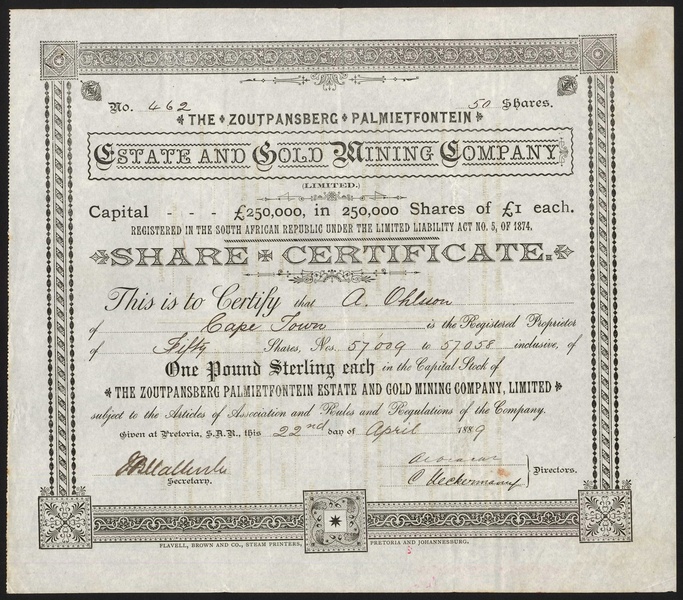 No. 462 50 Shares.
THE ZOUTPANSBERG PALMIETFONTEIN
ESTATE AND GOLD MINING COMPANY
(LIMITED.)
Capital - - - £250,000, in 250,000 Shares of £1 each.
REGISTERED IN THE SOUTH AFRICAN REPUBLIC UNDER THE LIMITED LIABILITY ACT NO. 5, OF 1874.
SHARE CERTIFICATE.
This is to Certify that A. Ohlsson
of Cape Town is the Registered Proprietor
of Fifty Shares, Nos. 57,009 to 57,058 inclusive, of
One Pound Sterling each in the Capital Stock of
THE ZOUTPANSBERG PALMIETFONTEIN ESTATE AND GOLD MINING COMPANY, LIMITED
subject to the Articles of Association and Rules and Regulations of the Company.
Given at Pretoria, S.A.R., this 22nd day of April 1889
Secretary.
C Ueckermann
Directors.
FLAVELL, BROWN AND CO., STEAM PRINTERS, PRETORIA AND JOHANNESBURG.